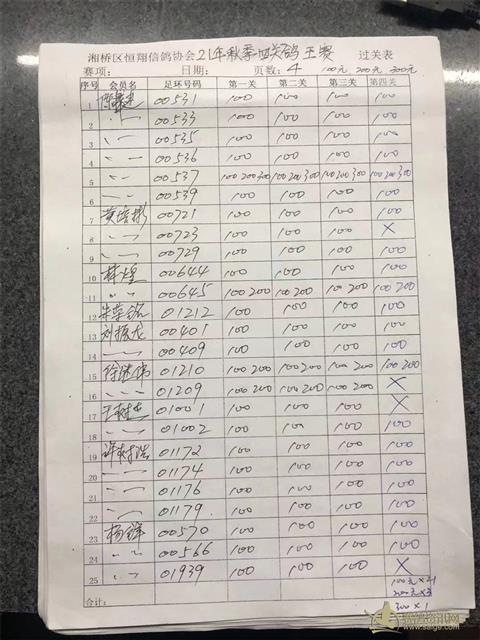 湘桥区恒翔信鸽协会21年秋季四关鸽王赛 过关表
赛项： 日期： 页数：4 100元 200元 300元
序号 会员名 足环号码 第一关 第二关 第三关 第四关
1 00531 100 100 100 100
2 〃 00533 100 100 100 100
3 〃 00535 100 100 100 100
4 〃 00536 100 100 100 100
5 〃 00537 100 200 300 100 200 300 100 200 300 100 200 300
6 〃 00539 100 100 100 100
7 黄培彬 00721 100 100 100 100
8 〃 00723 100 100 100 ×
9 〃 00729 100 100 100 100
10 林煌 00644 100 100 100 100
11 〃 00645 100 200 100 200 100 200 100 200
12 朱荣铭 01212 100 100 100 100
13 刘振龙 00401 100 100 100 100
14 〃 00409 100 100 100 100
15 徐继伟 01210 100 200 100 200 100 200 100 200
16 〃 01209 100 200 100 200 100 200 ×
17 01001 100 100 100 ×
18 〃 01002 100 100 100 100
19 许树浩 01172 100 100 100 100
20 〃 01174 100 100 100 100
21 〃 01176 100 100 100 100
22 〃 01179 100 100 100 100
23 杨锋 00570 100 100 100 100
24 〃 00566 100 100 100 100
25 〃 01939 100 100 100 ×
合计：
100元×21
200元×3
300×1
www.saige.com